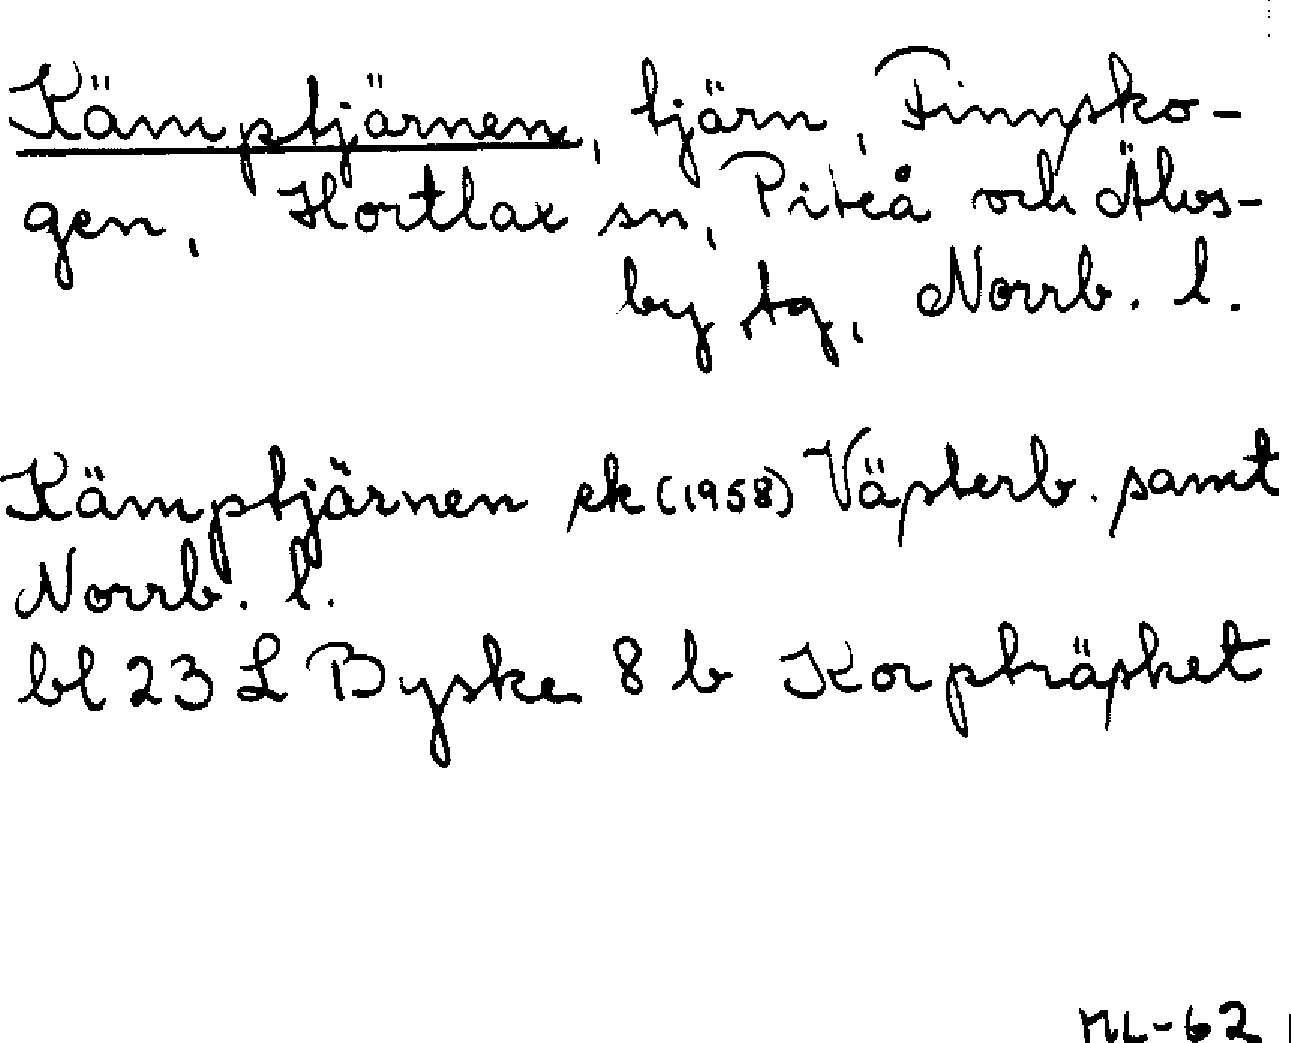 Kämpstjärnen, tjärn, Finnsko-
gen, Hortlax sn, Piteå och Älvs-
by tg, Norrb. l.
Kämpstjärnen ek (1958) Västerb. samt
Norrb. l.
bl 23 L Byske 8 b Korsträsket
ML-62